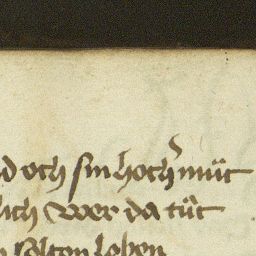 d och sin hochmůt
lich Wer da tůt
n solten loben